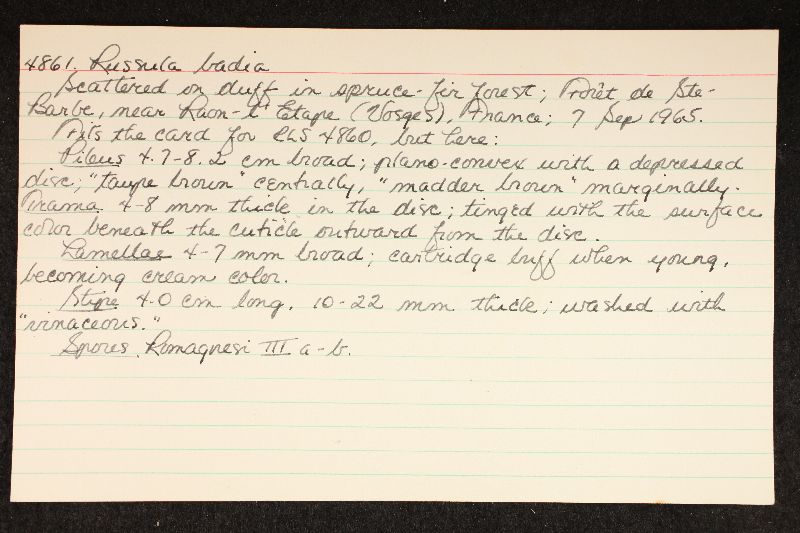 4861. Russula badia
Scattered on duff in spruce-fir forest; Forêt de Ste-
Barbe, near Raon-l'Etape (Vosges), France; 7 Sep 1965.
Fits the card for RLS 4860, but here:
Pileus 4.7-8.2 cm broad; plano-convex with a depressed
disc; "taupe brown" centrally, "madder brown" marginally.
Trama 4-8 mm thick in the disc; tinged with the surface
color beneath the cuticle outward from the disc.
Lamellae 4-7 mm broad; cartridge buff when young,
becoming cream color.
Stipe 4.0 cm long, 10-22 mm thick; washed with
"vinaceous."
Spores Romagnesi III a-b.